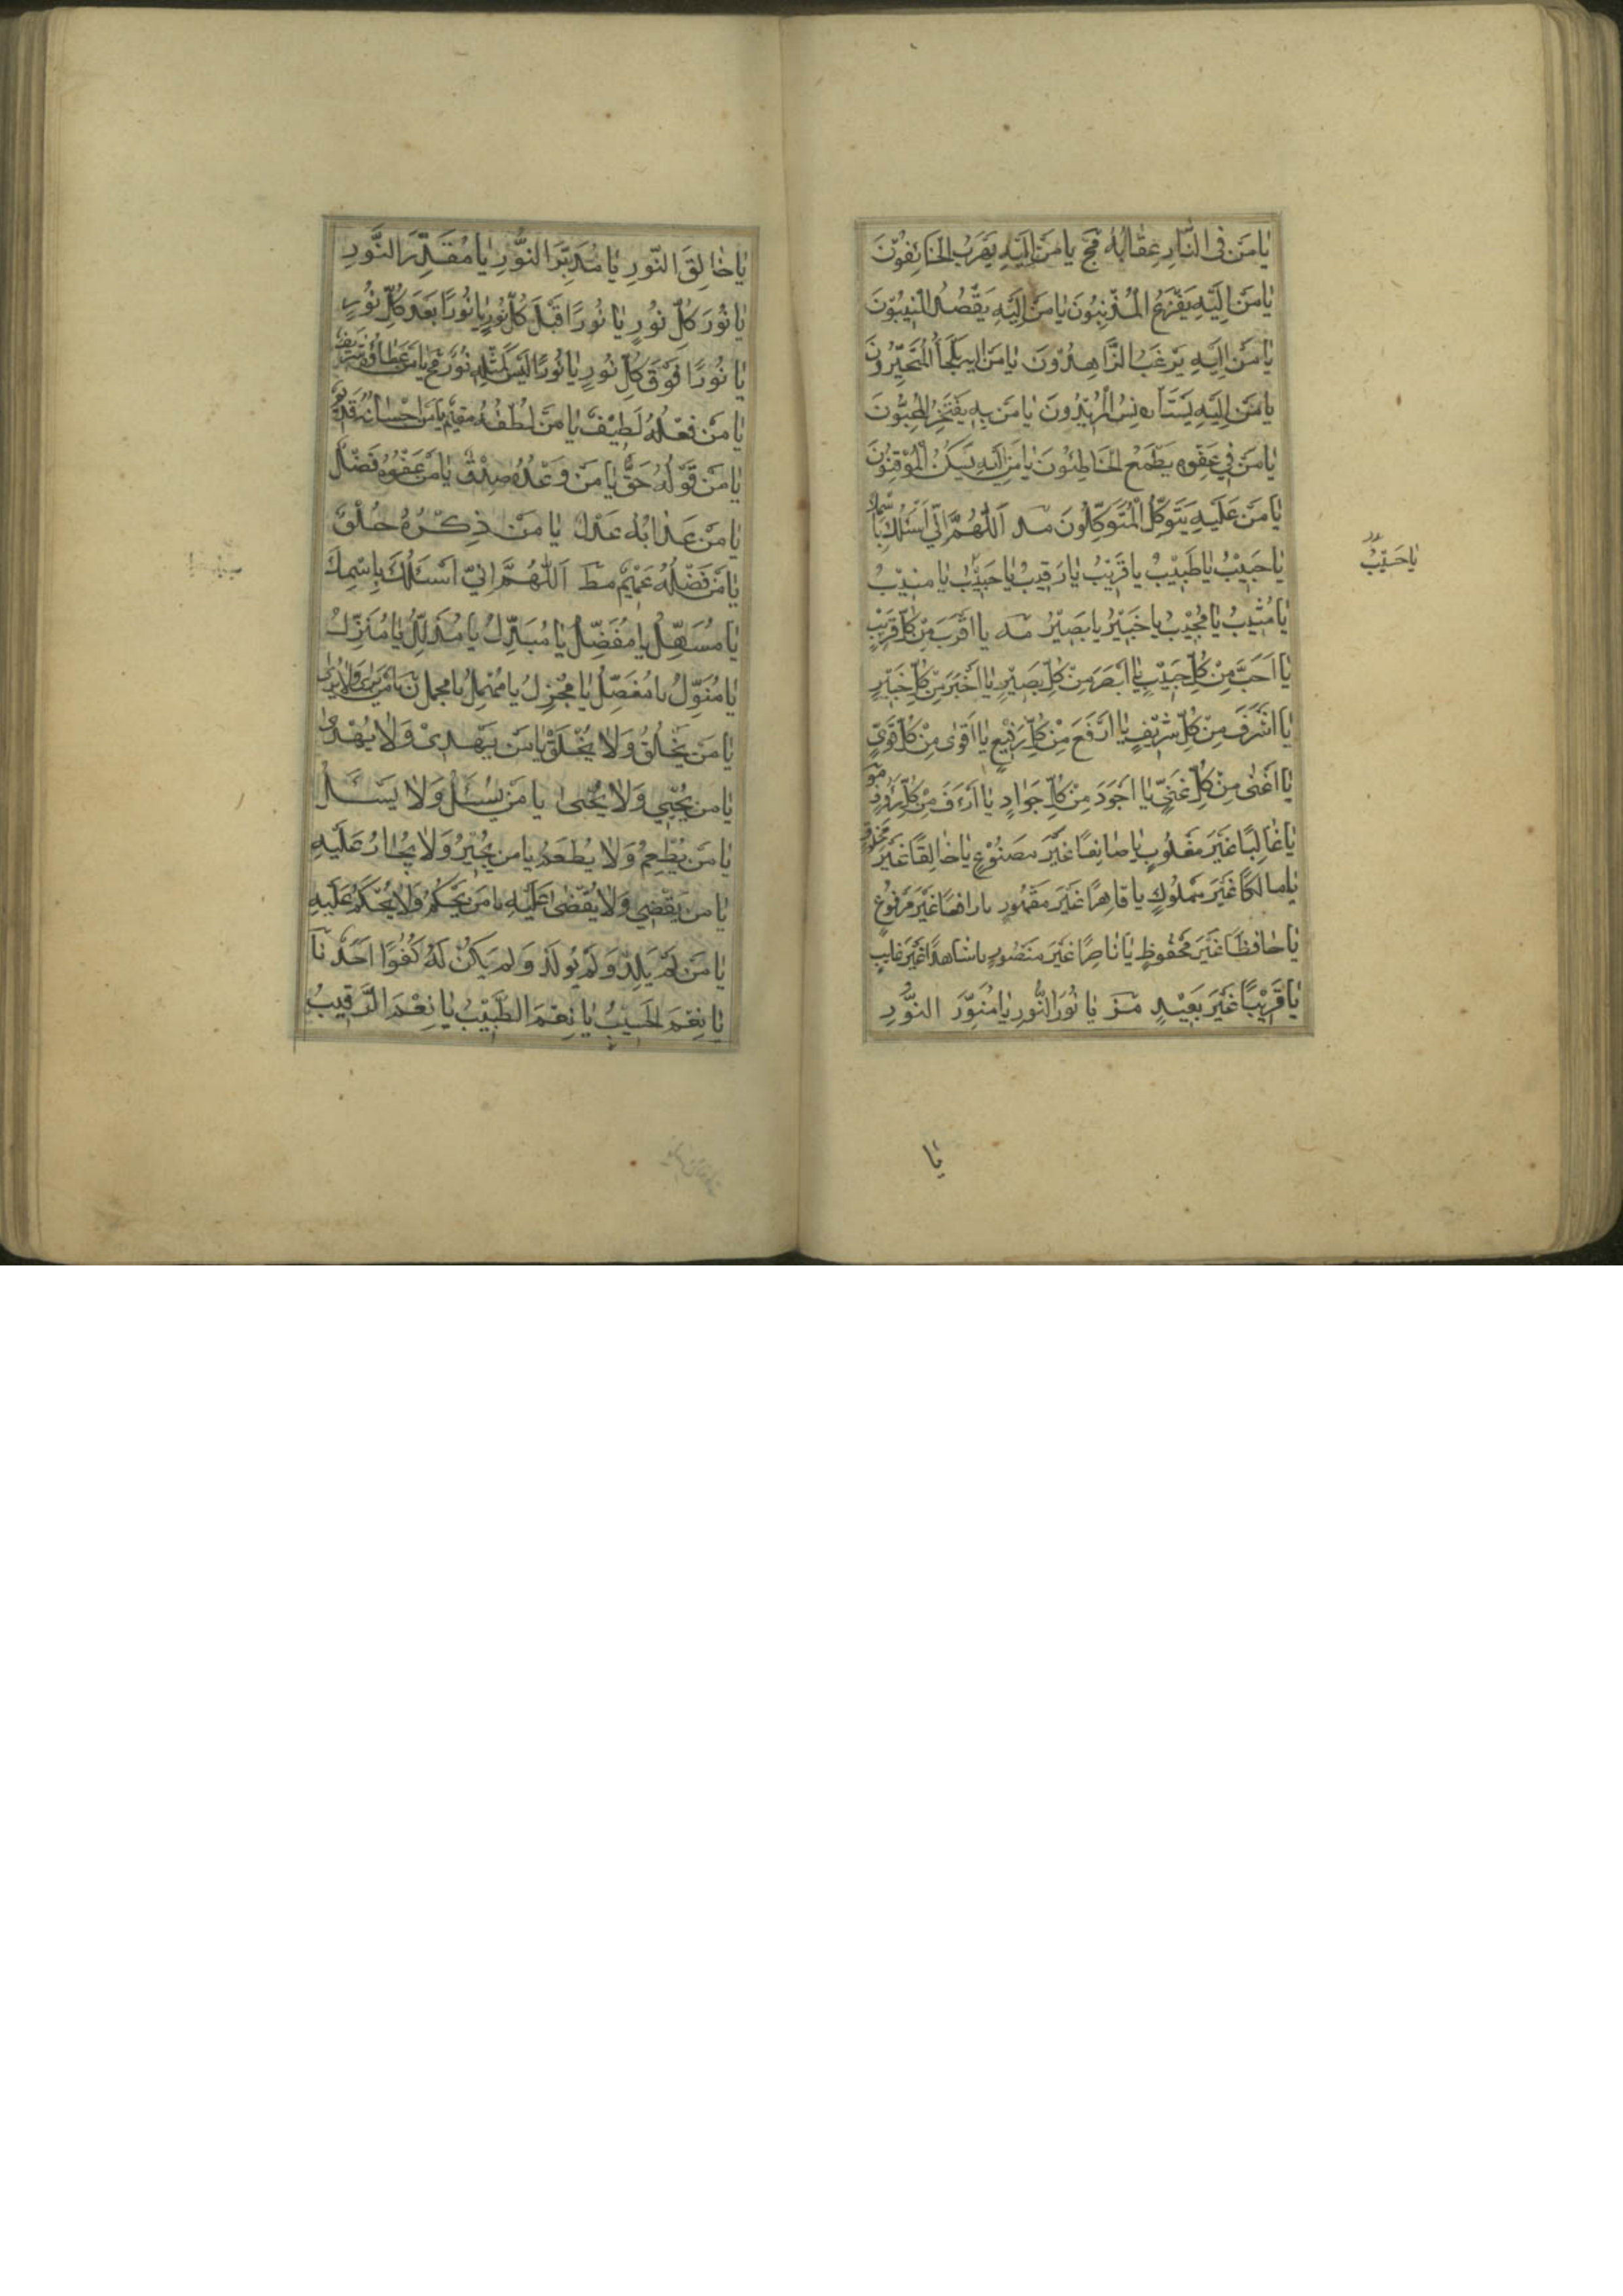 يٰا مَنْ فِى النّٰارِ عِقٰابُهُ مج يٰا مَنْ اِلَيْهِ يَهْرَبُ الْخٰائِفُوْنَ
يٰا مَنْ اِلَيْهِ يَفْزَعُ الْمُذْنِبُونَ يٰا مَنْ اِلَيْهِ يَقْصُدُ الْمُنِيْبُوْنَ
يٰا مَنْ اِلَيْهِ يَرْغَبُ الزّٰاهِدُوْنَ يٰا مَنْ اِلَيْهِ يَلْجَأُ الْمُتَحَيِّرُونَ
يٰا مَنْ اِلَيْهِ يَسْتَأْنِسُ الْمُرِيْدُونَ يٰا مَنْ بِهِ يَفْتَخِرُ الْمُحِبُّوْنَ
يٰا مَنْ فِي عَفْوِهِ يَطْمَعُ الْخٰاطِئُوْنَ يٰا مَنْ اِلَيْهِ يَسْكُنُ الْمُوْقِنُوْنَ
يٰا مَنْ عَلَيْهِ يَتَوَكَّلُ الْمُتَوَكِّلُونَ مد اَللّٰهُمَّ اِنّي اَسْئَلُكَ بِاسْمِكَ
يٰا حَبِيْبُ يٰا طَبِيْبُ يٰا قَرِيْبُ يٰا رَقِيبُ يٰا حَسِيْبُ يٰا مُنِيْبُ
يٰا حَسِيْبُ
يٰا مُثِيْبُ يٰا مُجِيْبُ يٰا خَبِيْرُ يٰا بَصِيْرُ مه يٰا اَقْرَبَ مِنْ كُلِّ قَرِيْبٍ
يٰا اَحَبَّ مِنْ كُلِّ حَبِيْبٍ يٰا اَبْصَرَ مِنْ كُلِّ بَصِيْرٍ يٰا اَخْبَرَ مِنْ كُلِّ خَبِيْرٍ
يٰا اَشْرَفَ مِنْ كُلِّ شَرِيْفٍ يٰا اَرْفَعَ مِنْ كُلِّ رَفِيْعٍ يٰا اَقْوٰى مِنْ كُلِّ قَوِيٍّ
يٰا اَغْنٰى مِنْ كُلِّ غَنِيٍّ يٰا اَجْوَدَ مِنْ كُلِّ جَوٰادٍ يٰا اَرْءَفَ مِنْ كُلِّ رَؤُفٍ مو
يٰا غٰالِبًا غَيْرَ مَغْلُوبٍ يٰا صٰانِعًا غَيْرَ مَصْنُوْعٍ يٰا خٰالِقًا غَيْرَ مَخْلُوقٍ
يٰا مٰالِكًا غَيْرَ مَمْلُوكٍ يٰا قٰاهِرًا غَيْرَ مَقْهُورٍ يٰا رٰافِعًا غَيْرَ مَرْفُوْعٍ
يٰا حٰافِظًا غَيْرَ مَحْفُوظٍ يٰا نٰاصِرًا غَيْرَ مَنْصُورٍ يٰا شٰاهِدًا غَيْرَ غٰايِبٍ
يٰا قَرِيْبًا غَيْرَ بَعِيْدٍ مز يٰا نُوْرَ النُّورِ يٰا مُنَوِّرَ النُّوْرِ
يٰا
يٰا خٰالِقَ النُّوْرِ يٰا مُدَبِّرَ النُّوْرِ يٰا مُقَدِّرَ النُّوْرِ
يٰا نُوْرَ كُلِّ نُوْرٍ يٰا نُوْرًا قَبْلَ كُلِّ نُوْرٍ يٰا نُوْرًا بَعْدَ كُلِّ نُوْرٍ
يٰا نُوْرًا فَوْقَ كُلِّ نُوْرٍ يٰا نُوْرًا لَيْسَ كَمِثْلِهِ نُوْرٌ مح يٰا مَنْ عَطٰاؤُهُ شَرِيْفٌ
يٰا مَنْ فِعْلُهُ لَطِيْفٌ يٰا مَنْ لُطْفُهُ مُقِيْمٌ يٰا مَنْ اِحْسٰانُهُ قَدِيْمٌ
يٰا مَنْ قَوْلُهُ حَقٌّ يٰا مَنْ وَعْدُهُ صِدْقٌ يٰا مَنْ عَفْوُهُ فَضْلٌ
يٰا مَنْ عَذٰابُهُ عَدْلٌ يٰا مَنْ ذِكْرُهُ حُلْوٌ
يٰا مَنْ فَضْلُهُ عَمِيْمٌ مط اَللّٰهُمَّ اِنّيْ اَسْئَلُكَ بِاسْمِكَ
يٰا مُسَهِّلُ يٰا مُفَضِّلُ يٰا مُبَدِّلُ يٰا مُذَلِّلُ يٰا مُنَزِّلُ
يٰا مُنَوِّلُ يٰا مُفَصِّلُ يٰا مُجْزِلُ يٰا مُمْهِلُ يٰا مُجْمِلُ ن يٰا مَنْ يَرٰى وَلٰا يُرٰى
يٰا مَنْ يَخْلُقُ وَلٰا يُخْلَقُ يٰا مَنْ يَهْدِىْ وَلٰا يُهْدٰى
يٰا مَنْ يُحْيِي وَلٰا يُحْيٰى يٰا مَنْ يُسْئَلُ وَلٰا يَسْئَلُ
يٰا مَنْ يُطْعِمُ وَلٰا يُطْعَمُ يٰا مَنْ يُجِيْرُ وَلٰا يُجٰارُ عَلَيْهِ
يٰا مَنْ يَقْضِي وَلٰا يُقْضٰى عَلَيْهِ يٰا مَنْ يَحْكُمُ وَلٰا يُحْكَمُ عَلَيْهِ
يٰا مَنْ لَمْ يَلِدْ وَلَمْ يُولَدْ وَلَمْ يَكُنْ لَهُ كُفُوًا اَحَدٌ نا
يٰا نِعْمَ الْحَسِيْبُ يٰا نِعْمَ الطَّبِيْبُ يٰا نِعْمَ الرَّقِيبُ